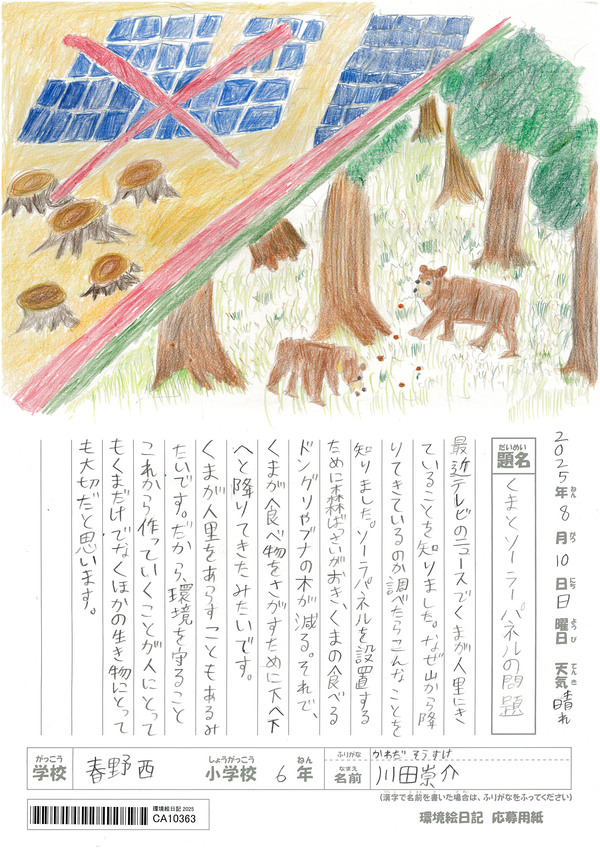 2025年8月10日日曜日 天気 晴れ
ねん
がつ
にち
ようび
てんき
だいめい
題名
くまとソーラーパネルの問題
最近テレビのニュースでくまが人里にき
ていることを知りました。なぜ山から降
りてきているのか調べたらこんなことを
知りました。ソーラパネルを設置する
ために森林ばっさいがおき、くまの食べる
ドングリやブナの木が減る。それで、
くまが食べ物をさがすために下へ下
へと降りてきたみたいです。
くまが人里をあらすこともあるみ
たいです。だから、環境を守ること
これから作っていくことが人にとって
もくまだけでなくほかの生き物にとって
も大切だと思います。
がっこう
学校
春野西
しょうがっこう
小学校
6
ねん
年
ふりがな
かわだ そうすけ
なまえ
名前
川田崇介
(漢字で名前を書いた場合は、ふりがなをふってください)
環境絵日記 2025
CA10363
環境絵日記 応募用紙